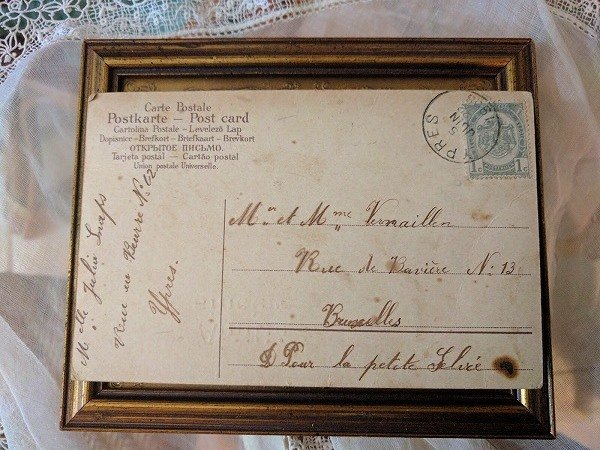 Carte Postale
Postkarte — Post card
Cartolina Postale - Levelező Lap
Dopisnice - Brefkort - Briefkaart - Brevkort
ОТКРЫТОЕ ПИСЬМО.
Tarjeta postal — Cartão postal
Union postale Universelle.
YPRES
1c 1c
Mr et Mme Vermaillen
Rue de Bavière No 13
Bruxelles
Pour la petite
Melle Julia Snaps
Rue au Beurre No 62
Ypres.